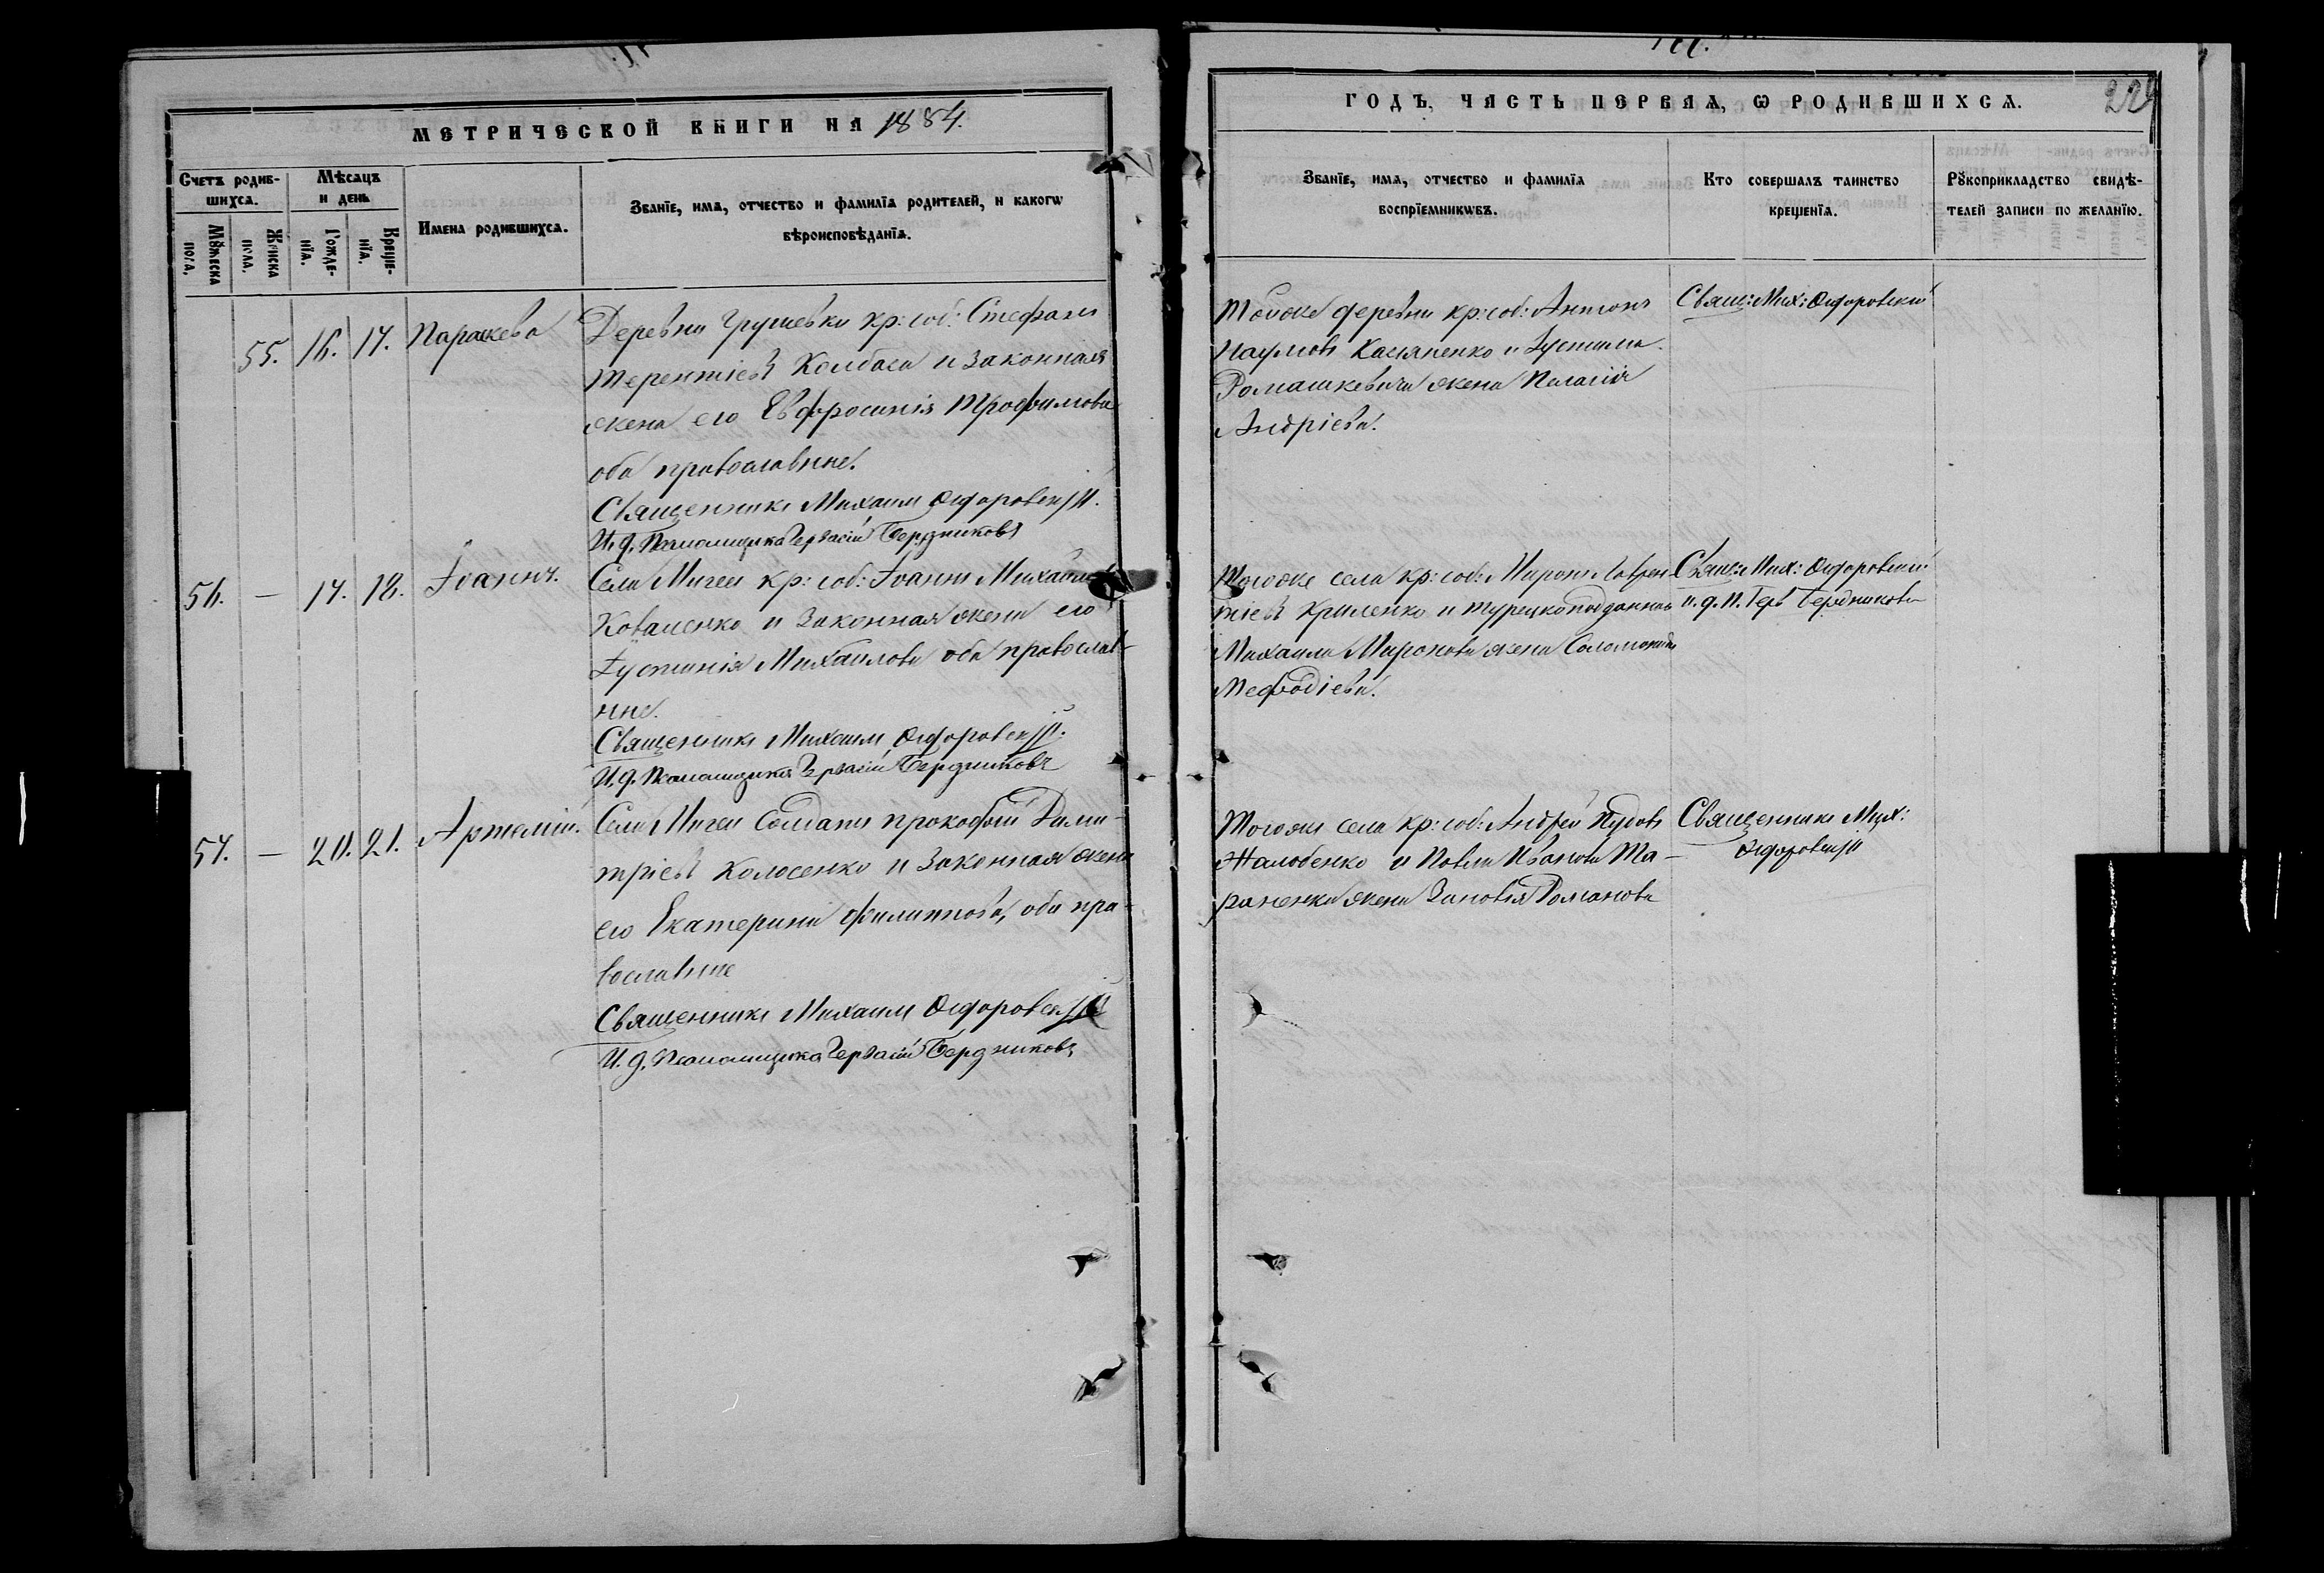 МЕТРИЧЕСКОЙ КНИГИ НА 1884.
Счетъ родив-
шихся.
Мѣсяцъ
и день
Имена родившихся.
Званїе, имя, отчество и фамилїя родителей, и какогѡ
вѣроисповѣданїя.
Мꙋжеска
пола.
Женска
пола.
Рожде-
нїя.
Креще-
нїя.
55. 16. 17. Параскева
Деревни Грушевки кр: соб: Стефанъ
Терентіевъ Колбаса и законная
жена его Евфросинія Трофимова
оба православные.
Священникъ Михаилъ Ѳедоровскій.
И. д. Псаломщика Гервасій Бердниковъ
56. — 17. 18. Іоаннъ.
Села Мигеи кр: соб: Іоаннъ Михайловъ
Коваленко и законная жена его
Іустинія Михаилова оба православ-
ные.
Священникъ Михаилъ Ѳедоровскій.
И. д. Псаломщика Гервасій Бердниковъ
57. — 20. 21. Артемій.
Села Мигеи Солдатъ Прокофій Дими-
тріевъ Колосенко и законная жена
его Екатерина Филиппова, оба пра-
вославные
Священникъ Михаилъ Ѳедоровскій
И. д. Псаломщика Гервасій Бердниковъ
ГОДЪ, ЧАСТЬ ПЕРВАЯ, Ѡ РОДИВШИХСЯ.
Званїе, имя, отчество и фамилїя
воспрїемникѡвъ.
Кто совершалъ таинство
крещенїя.
Рꙋкоприкладство свидѣ-
телей записи по желанїю.
Тойже деревни кр: соб: Антонъ
Наумовъ Касяненко и Іустина
Ромашкевича жена Пелагія
Андріева.
Свящ: Мих: Ѳедоровскій
Тогоже села кр: соб: Миронъ Лаврен-
тіевъ Криленко и турецкоподданнаго
Михаила Миронова жена Соломонія
Мефодіева.
Свящ: Мих: Ѳедоровскій
и. д. П. Герв Бердниковъ
Тогоже села кр: соб: Андрей Пудовъ
Жалобенко и Павла Иванова Та-
раненка жена Зиновія Романова
Священникъ Мих:
Ѳедоровскій